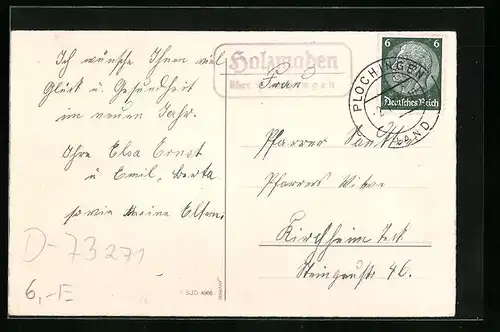 Ich wünsche Ihnen viel
Glück u. Gesundheit
im neuen Jahr.
Ihre Elsa Ernst
u Emil, Berta
sowie meine Eltern.
D-73271
6,-E
SJD
Holzmaden
über
6 6
Deutsches Reich
PLOCHINGEN
LAND
Frau
Pfarrer
Pfarrers Witwe
Kirchheim Teck
Steingaustr 46.